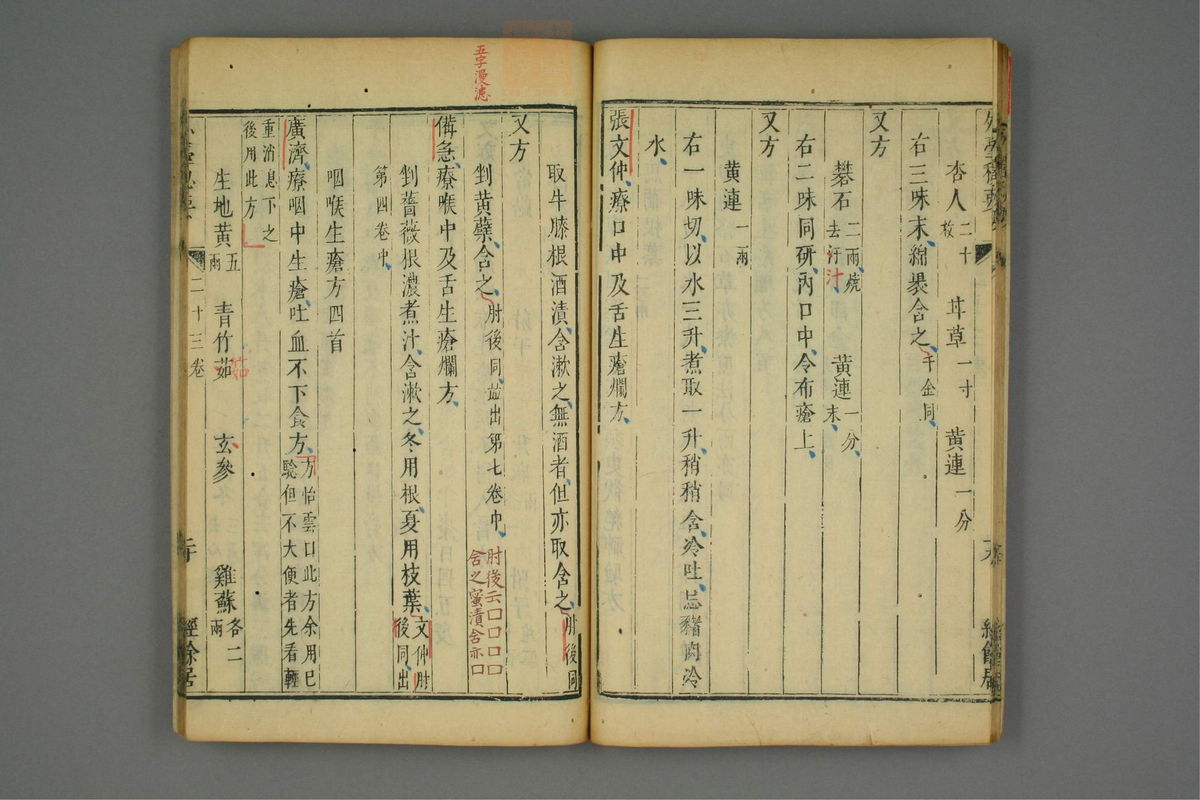 杏人二十枚 甘草一寸 黃連一分
右三味末綿裹含之千金同
又方
礬石二兩燒去汗汁 黃連一分末
右二味同研內口中令布瘡上
又方
黃連一兩
右一味切以水三升煮取一升稍稍含冷吐忌豬肉冷
水
張文仲療口中及舌生瘡爛方
取牛膝根酒漬含漱之無酒者但亦取含之肘後同
又方
剉黃蘗含之肘後同並出第七卷中
肘後云口口口口口
含之蜜漬含亦口
五字漫漶
備急療喉中及舌生瘡爛方
剉薔薇根濃煮汁含漱之冬用根夏用枝葉文仲肘後同出
第四卷中
咽喉生瘡方四首
廣濟療咽中生瘡吐血不下食方方怡雲口此方余用已驗但不大便者先看輕
重消息下之後用此方
生地黃五兩 青竹茹 玄參 雞蘇各二兩
茹
二十三卷
經餘居